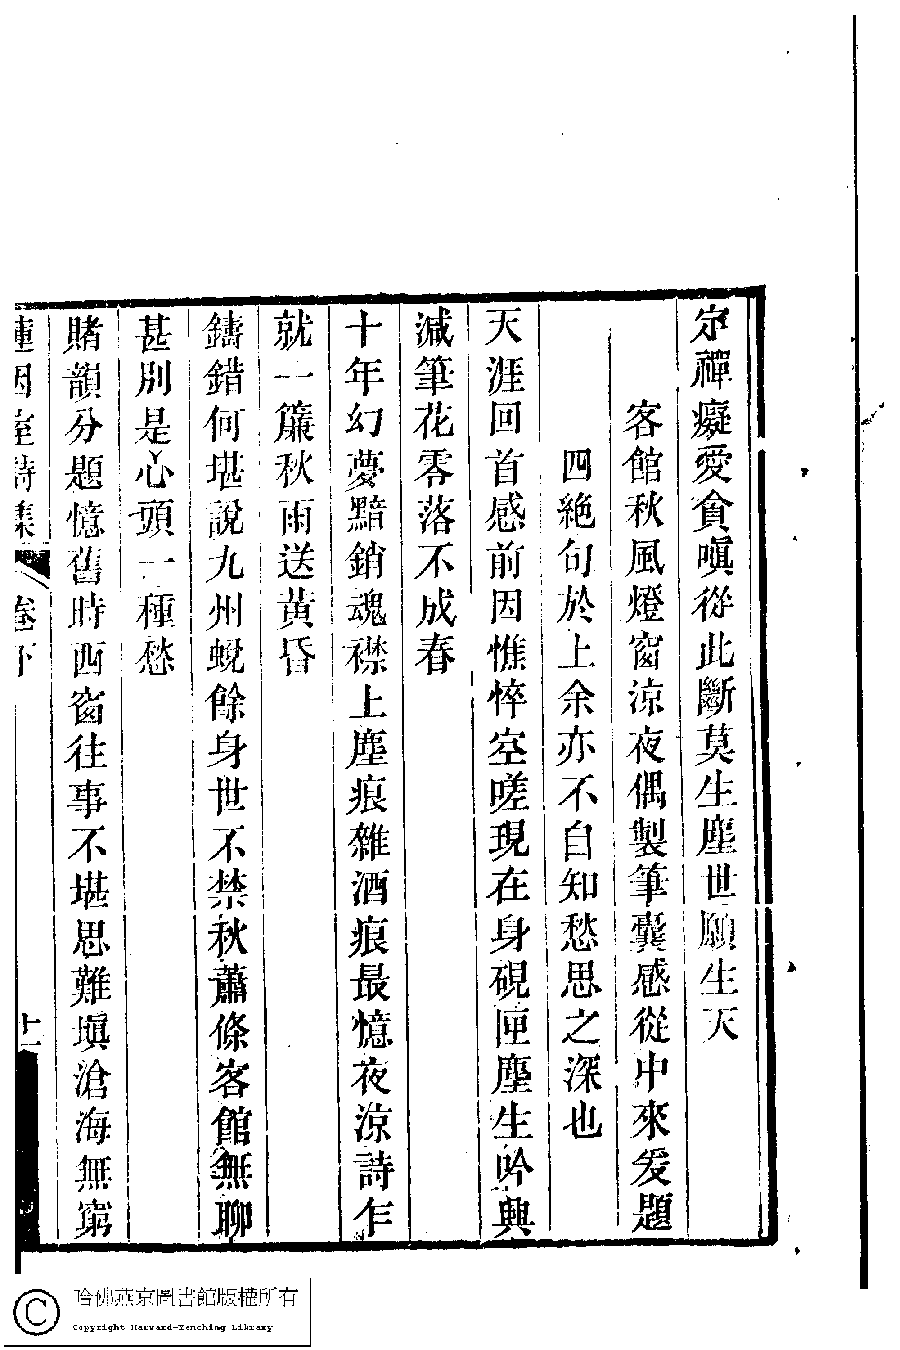 定禪癡愛貪嗔從此斷莫生塵世願生天
客館秋風燈窗涼夜偶製筆囊感從中來爰題
四絶句於上余亦不自知愁思之深也
天涯回首感前因惟悴空嗟現在身硯匣塵生吟興
減筆花零落不成春
十年幻夢黯銷魂襟上塵痕雜酒痕最憶夜涼詩乍
就一簾秋雨送黄昏
鑄錯何堪說九州蛻餘身世不禁秋蕭條客館無聊
甚別是心頭一種愁
賭韻分題憶舊時西窗往事不堪思難塡滄海無窮
蓮因室詩集 卷下 十一
哈佛燕京圖書館版權所有
Copyright Harvard-Yenching Library